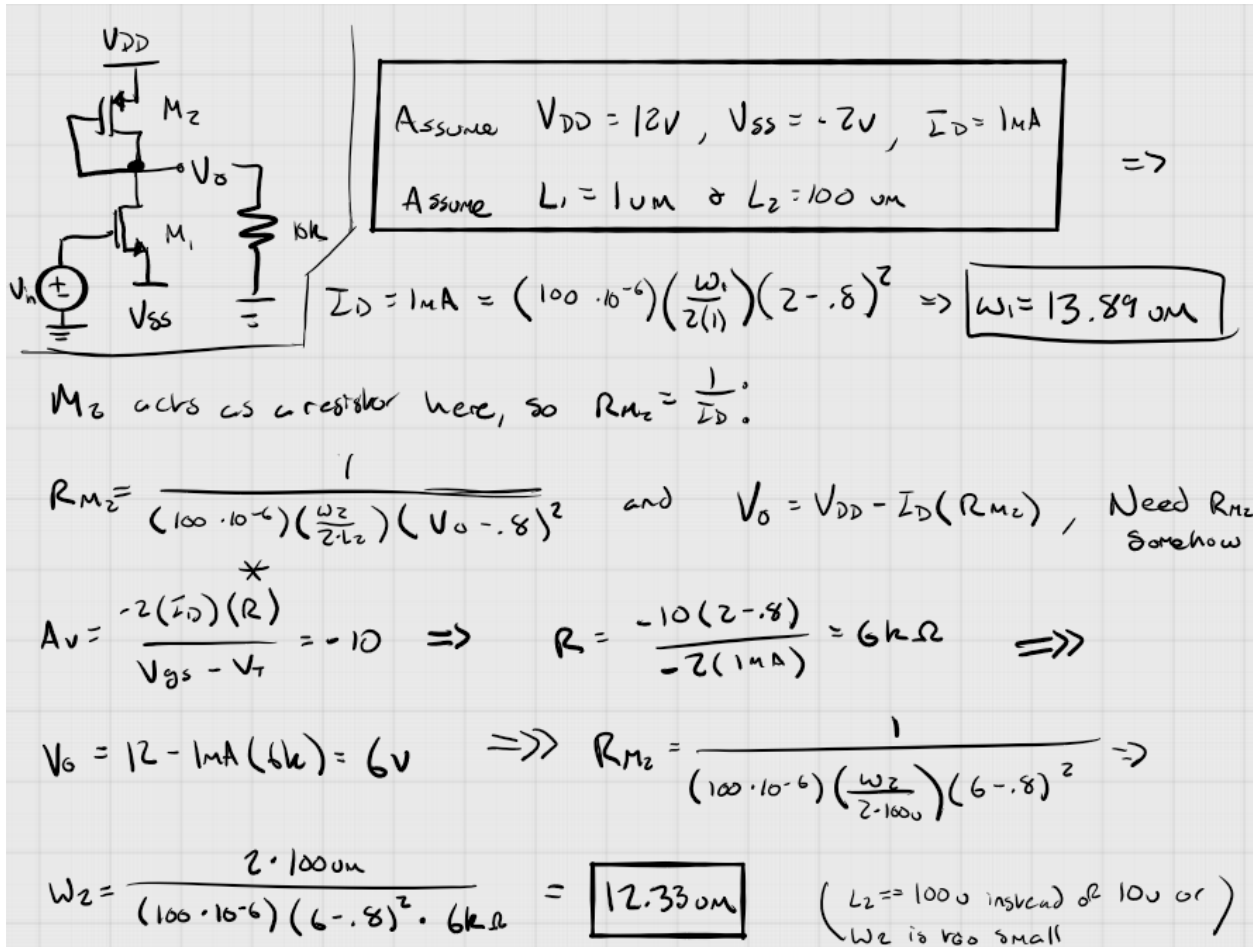 VDD
M2
Vo
M1
10k
Vin
VSS
Assume VDD = 12V, VSS = -2V, ID = 1mA
Assume L1 = 1um & L2 = 100 um
=>
ID = 1mA = (100 · 10^-6)(W1/2(1))(2 - .8)^2 => W1 = 13.89 um
M2 acts as a resistor here, so RM2 = 1/ID:
RM2 = 1/((100 · 10^-6)(W2/2·L2)(Vo - .8)^2) and Vo = VDD - ID(RM2), Need RM2
Somehow
*
Av = -2(ID)(R)/(Vgs - VT) = -10 => R = -10(2 - .8)/-2(1mA) = 6kΩ =>>
Vo = 12 - 1mA(6k) = 6V =>> RM2 = 1/((100 · 10^-6)(W2/2·100u)(6 - .8)^2) =>
W2 = 2 · 100um/((100 · 10^-6)(6 - .8)^2 · 6kΩ) = 12.33 um
(L2 == 100u instead of 10u or
W2 is too small)